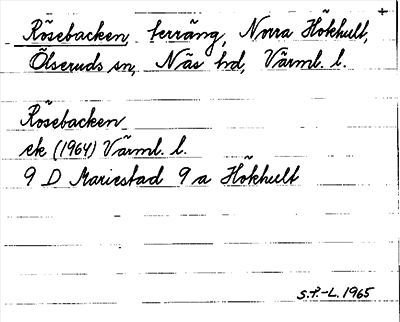 +
Rösebacken, terräng, Norra Hökhult,
Ölseruds sn, Näs hd, Värml. l.
Rösebacken
ek (1964) Värml. l.
9 D Mariestad 9 a Hökhult
S.F.-L. 1965